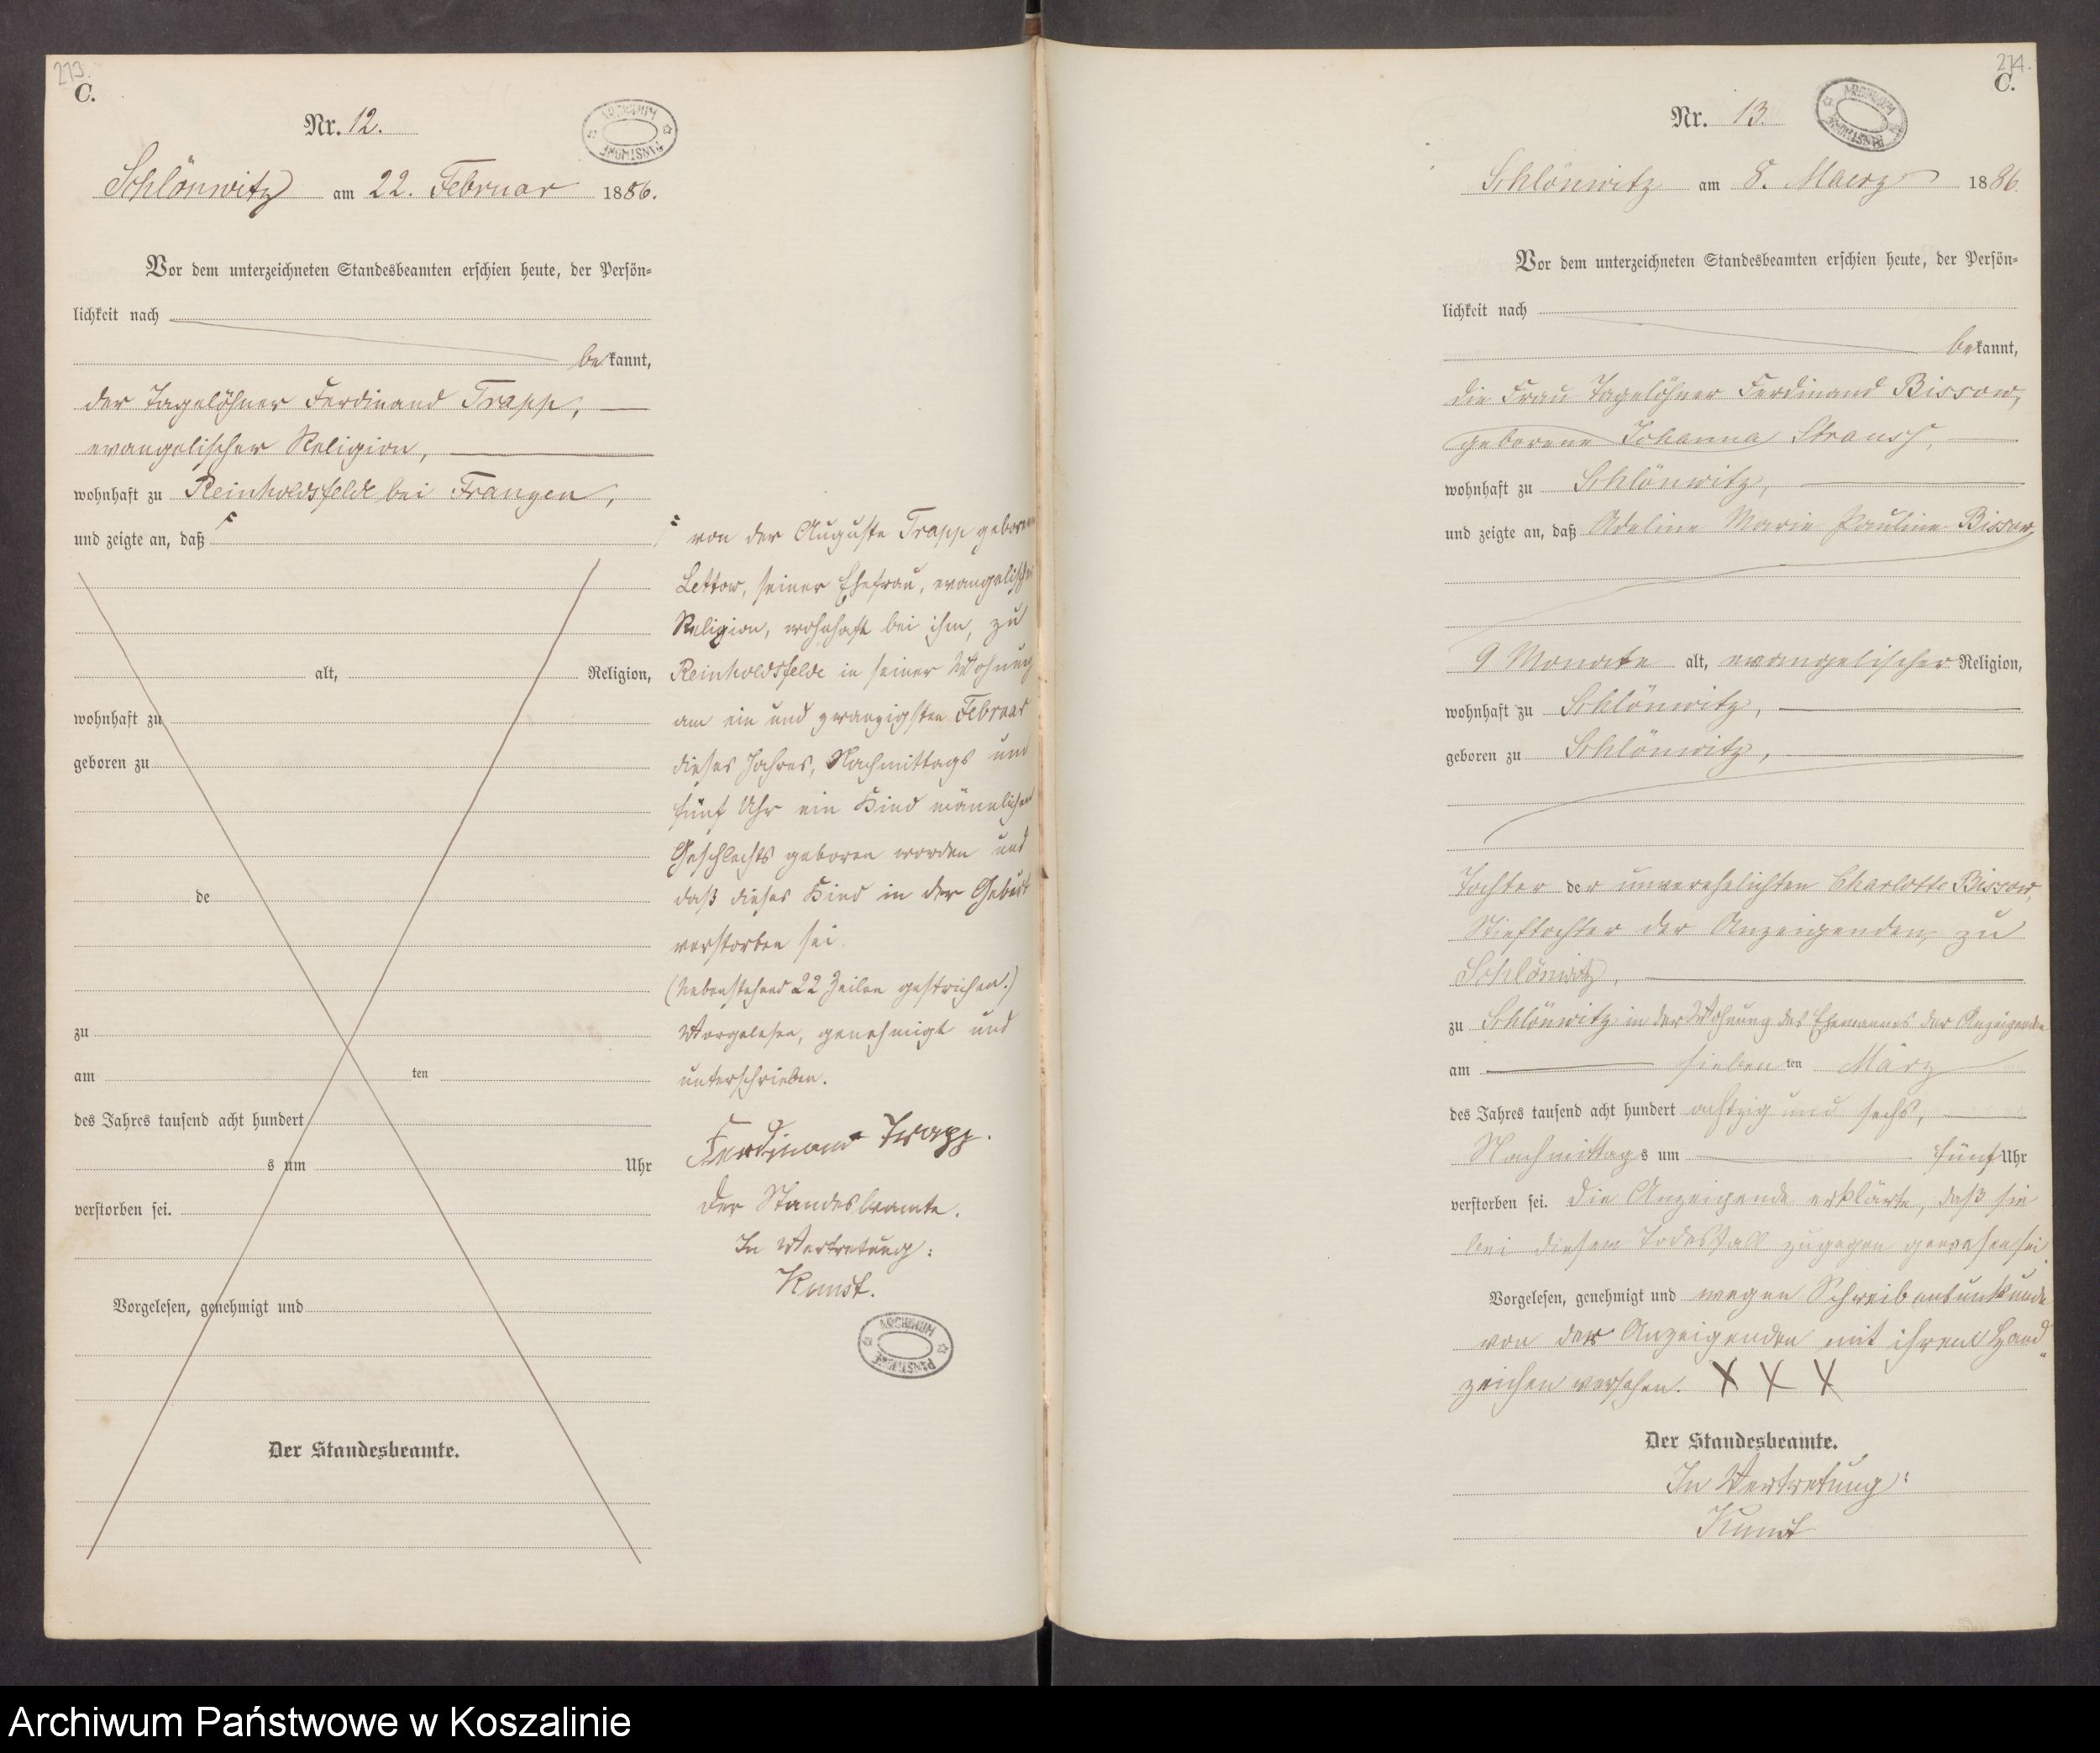 273.
C.
Nr. 12.
ARCHIWUM PAŃSTWOWE
Schlönwitz am 22. Februar 1886.
Vor dem unterzeichneten Standesbeamten erschien heute, der Persön=
lichkeit nach
bekannt,
der Tagelöhner Ferdinand Trapp,
evangelischer Religion,
wohnhaft zu Reinholdsfelde bei Frangen,
und zeigte an, daß
alt, Religion,
wohnhaft zu
geboren zu
de
zu
am ten
des Jahres tausend acht hundert
s um Uhr
verstorben sei.
Vorgelesen, genehmigt und
Der Standesbeamte.
von der Auguste Trapp geborenen
Lettow, seiner Ehefrau, evangelischer
Religion, wohnhaft bei ihm, zu
Reinholdsfelde in seiner Wohnung
am ein und zwanzigsten Februar
dieses Jahres, Nachmittags um
fünf Uhr ein Kind männlichen
Geschlechts geboren worden und
daß dieses Kind in der Geburt
verstorben sei.
(Nebenstehend 22 Zeilen gestrichen.)
Vorgelesen, genehmigt und
unterschrieben.
Ferdinand Trapp.
Der Standesbeamte.
In Vertretung:
Kunst.
ARCHIWUM PAŃSTWOWE
274.
C.
Nr. 13.
ARCHIWUM PAŃSTWOWE
Schlönwitz am 8. Maerz 1886.
Vor dem unterzeichneten Standesbeamten erschien heute, der Persön=
lichkeit nach
bekannt,
die Frau Tagelöhner Ferdinand Bissow,
geborene Johanna Strauss,
wohnhaft zu Schlönwitz,
und zeigte an, daß Adeline Marie Pauline Bissow,
9 Monate alt, evangelischer Religion,
wohnhaft zu Schlönwitz,
geboren zu Schlönwitz,
Tochter der unverehelichten Charlotte Bissow,
Stieftochter der Anzeigenden, zu
Schlönwitz,
zu Schlönwitz in der Wohnung des Ehemannes der Anzeigenden
am siebenten März
des Jahres tausend acht hundert achtzig und sechs,
Nachmittags um fünf Uhr
verstorben sei. Die Anzeigende erklärte, daß sie
bei diesem Todesfall zugegen gewesen sei.
Vorgelesen, genehmigt und wegen Schreibensunkunde
von der Anzeigenden mit ihrem Hand„
zeichen versehen. X X X
Der Standesbeamte.
In Vertretung:
Kunst
Archiwum Państwowe w Koszalinie